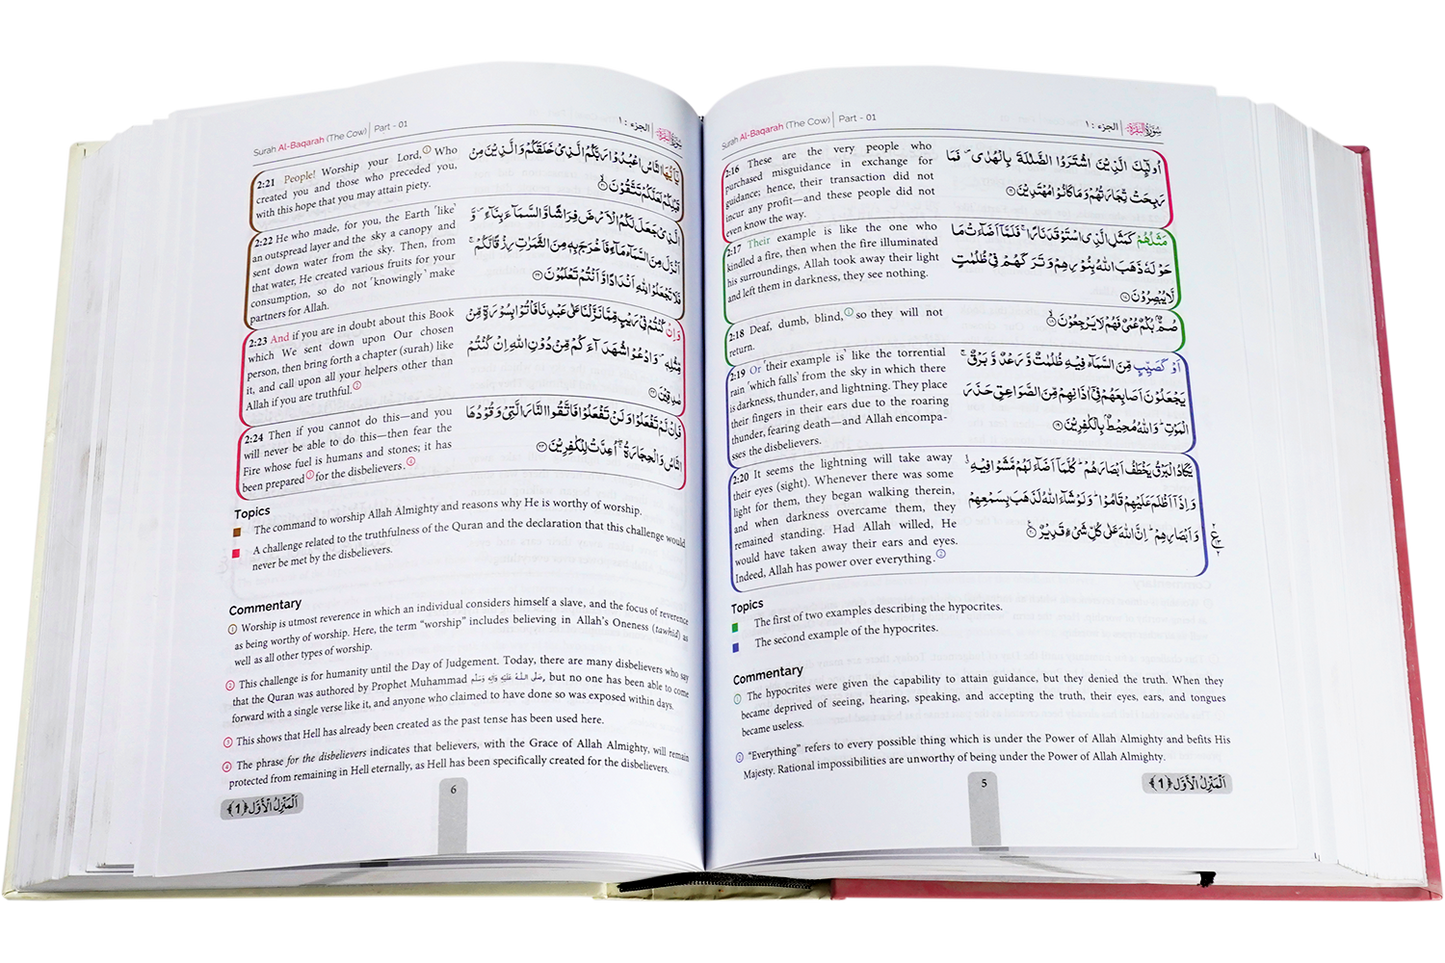 Surah Al-Baqarah (The Cow) | Part - 01
الجزء : ١ | سُوْرَةُ الْبَقَرَة
2:16 These are the very people who
purchased misguidance in exchange for
guidance; hence, their transaction did not
incur any profit—and these people did not
even know the way.
اُولٰٓىِٕكَ الَّذِیْنَ اشْتَرَوُا الضَّلٰلَةَ بِالْهُدٰى ۪ فَمَا
رَبِحَتْ تِّجَارَتُهُمْ وَ مَا كَانُوْا مُهْتَدِیْنَ ﴿۱۶﴾
2:17 Their example is like the one who
kindled a fire, then when the fire illuminated
his surroundings, Allah took away their light
and left them in darkness, they see nothing.
مَثَلُهُمْ كَمَثَلِ الَّذِی اسْتَوْقَدَ نَارًا ۚ فَلَمَّاۤ اَضَآءَتْ مَا
حَوْلَهٗ ذَهَبَ اللّٰهُ بِنُوْرِهِمْ وَ تَرَكَهُمْ فِیْ ظُلُمٰتٍ
لَّا یُبْصِرُوْنَ ﴿۱۷﴾
2:18 Deaf, dumb, blind,① so they will not
return.
صُمٌّۢ بُكْمٌ عُمْیٌ فَهُمْ لَا یَرْجِعُوْنَ ﴿۱۸﴾
2:19 Or ‘their example is’ like the torrential
rain ‘which falls’ from the sky in which there
is darkness, thunder, and lightning. They place
their fingers in their ears due to the roaring
thunder, fearing death—and Allah encompa-
sses the disbelievers.
اَوْ كَصَیِّبٍ مِّنَ السَّمَآءِ فِیْهِ ظُلُمٰتٌ وَّ رَعْدٌ وَّ بَرْقٌ ۚ
یَجْعَلُوْنَ اَصَابِعَهُمْ فِیْۤ اٰذَانِهِمْ مِّنَ الصَّوَاعِقِ حَذَرَ
الْمَوْتِ ؕ وَ اللّٰهُ مُحِیْطٌۢ بِالْكٰفِرِیْنَ ﴿۱۹﴾
2:20 It seems the lightning will take away
their eyes (sight). Whenever there was some
light for them, they began walking therein,
and when darkness overcame them, they
remained standing. Had Allah willed, He
would have taken away their ears and eyes.
Indeed, Allah has power over everything.②
یَكَادُ الْبَرْقُ یَخْطَفُ اَبْصَارَهُمْ ؕ كُلَّمَاۤ اَضَآءَ لَهُمْ مَّشَوْا فِیْهِ ۙ
وَ اِذَاۤ اَظْلَمَ عَلَیْهِمْ قَامُوْا ؕ وَ لَوْ شَآءَ اللّٰهُ لَذَهَبَ بِسَمْعِهِمْ
وَ اَبْصَارِهِمْ ؕ اِنَّ اللّٰهَ عَلٰى كُلِّ شَیْءٍ قَدِیْرٌ ﴿۲۰﴾
ع
Topics
The first of two examples describing the hypocrites.
The second example of the hypocrites.
Commentary
① The hypocrites were given the capability to attain guidance, but they denied the truth. When they
became deprived of seeing, hearing, speaking, and accepting the truth, their eyes, ears, and tongues
became useless.
② “Everything” refers to every possible thing which is under the Power of Allah Almighty and befits His
Majesty. Rational impossibilities are unworthy of being under the Power of Allah Almighty.
5
اَلْمَنْزِلُ الْاَوَّل ﴿1﴾
Surah Al-Baqarah (The Cow) | Part - 01
الجزء : ١ | سُوْرَةُ الْبَقَرَة
2:21 People! Worship your Lord,① Who
created you and those who preceded you,
with this hope that you may attain piety.
یٰۤاَیُّهَا النَّاسُ اعْبُدُوْا رَبَّكُمُ الَّذِیْ خَلَقَكُمْ وَ الَّذِیْنَ مِنْ
قَبْلِكُمْ لَعَلَّكُمْ تَتَّقُوْنَ ﴿۲۱﴾
2:22 He who made, for you, the Earth ‘like’
an outspread layer and the sky a canopy and
sent down water from the sky. Then, from
that water, He created various fruits for your
consumption, so do not ‘knowingly’ make
partners for Allah.
الَّذِیْ جَعَلَ لَكُمُ الْاَرْضَ فِرَاشًا وَّ السَّمَآءَ بِنَآءً ۪ وَّ
اَنْزَلَ مِنَ السَّمَآءِ مَآءً فَاَخْرَجَ بِهٖ مِنَ الثَّمَرٰتِ رِزْقًا لَّكُمْ ۚ
فَلَا تَجْعَلُوْا لِلّٰهِ اَنْدَادًا وَّ اَنْتُمْ تَعْلَمُوْنَ ﴿۲۲﴾
2:23 And if you are in doubt about this Book
which We sent down upon Our chosen
person, then bring forth a chapter (surah) like
it, and call upon all your helpers other than
Allah if you are truthful.②
وَ اِنْ كُنْتُمْ فِیْ رَیْبٍ مِّمَّا نَزَّلْنَا عَلٰى عَبْدِنَا فَاْتُوْا بِسُوْرَةٍ مِّنْ
مِّثْلِهٖ ۪ وَ ادْعُوْا شُهَدَآءَكُمْ مِّنْ دُوْنِ اللّٰهِ اِنْ كُنْتُمْ
صٰدِقِیْنَ ﴿۲۳﴾
2:24 Then if you cannot do this—and you
will never be able to do this—then fear the
Fire whose fuel is humans and stones; it has
been prepared③ for the disbelievers.④
فَاِنْ لَّمْ تَفْعَلُوْا وَ لَنْ تَفْعَلُوْا فَاتَّقُوا النَّارَ الَّتِیْ وَ قُوْدُهَا
النَّاسُ وَ الْحِجَارَةُ ۚۖ اُعِدَّتْ لِلْكٰفِرِیْنَ ﴿۲۴﴾
Topics
The command to worship Allah Almighty and reasons why He is worthy of worship.
A challenge related to the truthfulness of the Quran and the declaration that this challenge would
never be met by the disbelievers.
Commentary
① Worship is utmost reverence in which an individual considers himself a slave, and the focus of reverence
as being worthy of worship. Here, the term “worship” includes believing in Allah’s Oneness (tawhid) as
well as all other types of worship.
② This challenge is for humanity until the Day of Judgement. Today, there are many disbelievers who say
that the Quran was authored by Prophet Muhammad صَلَّى اللّٰهُ عَلَيْهِ وَاٰلِهٖ وَسَلَّم, but no one has been able to come
forward with a single verse like it, and anyone who claimed to have done so was exposed within days.
③ This shows that Hell has already been created as the past tense has been used here.
④ The phrase for the disbelievers indicates that believers, with the Grace of Allah Almighty, will remain
protected from remaining in Hell eternally, as Hell has been specifically created for the disbelievers.
6
اَلْمَنْزِلُ الْاَوَّل ﴿1﴾